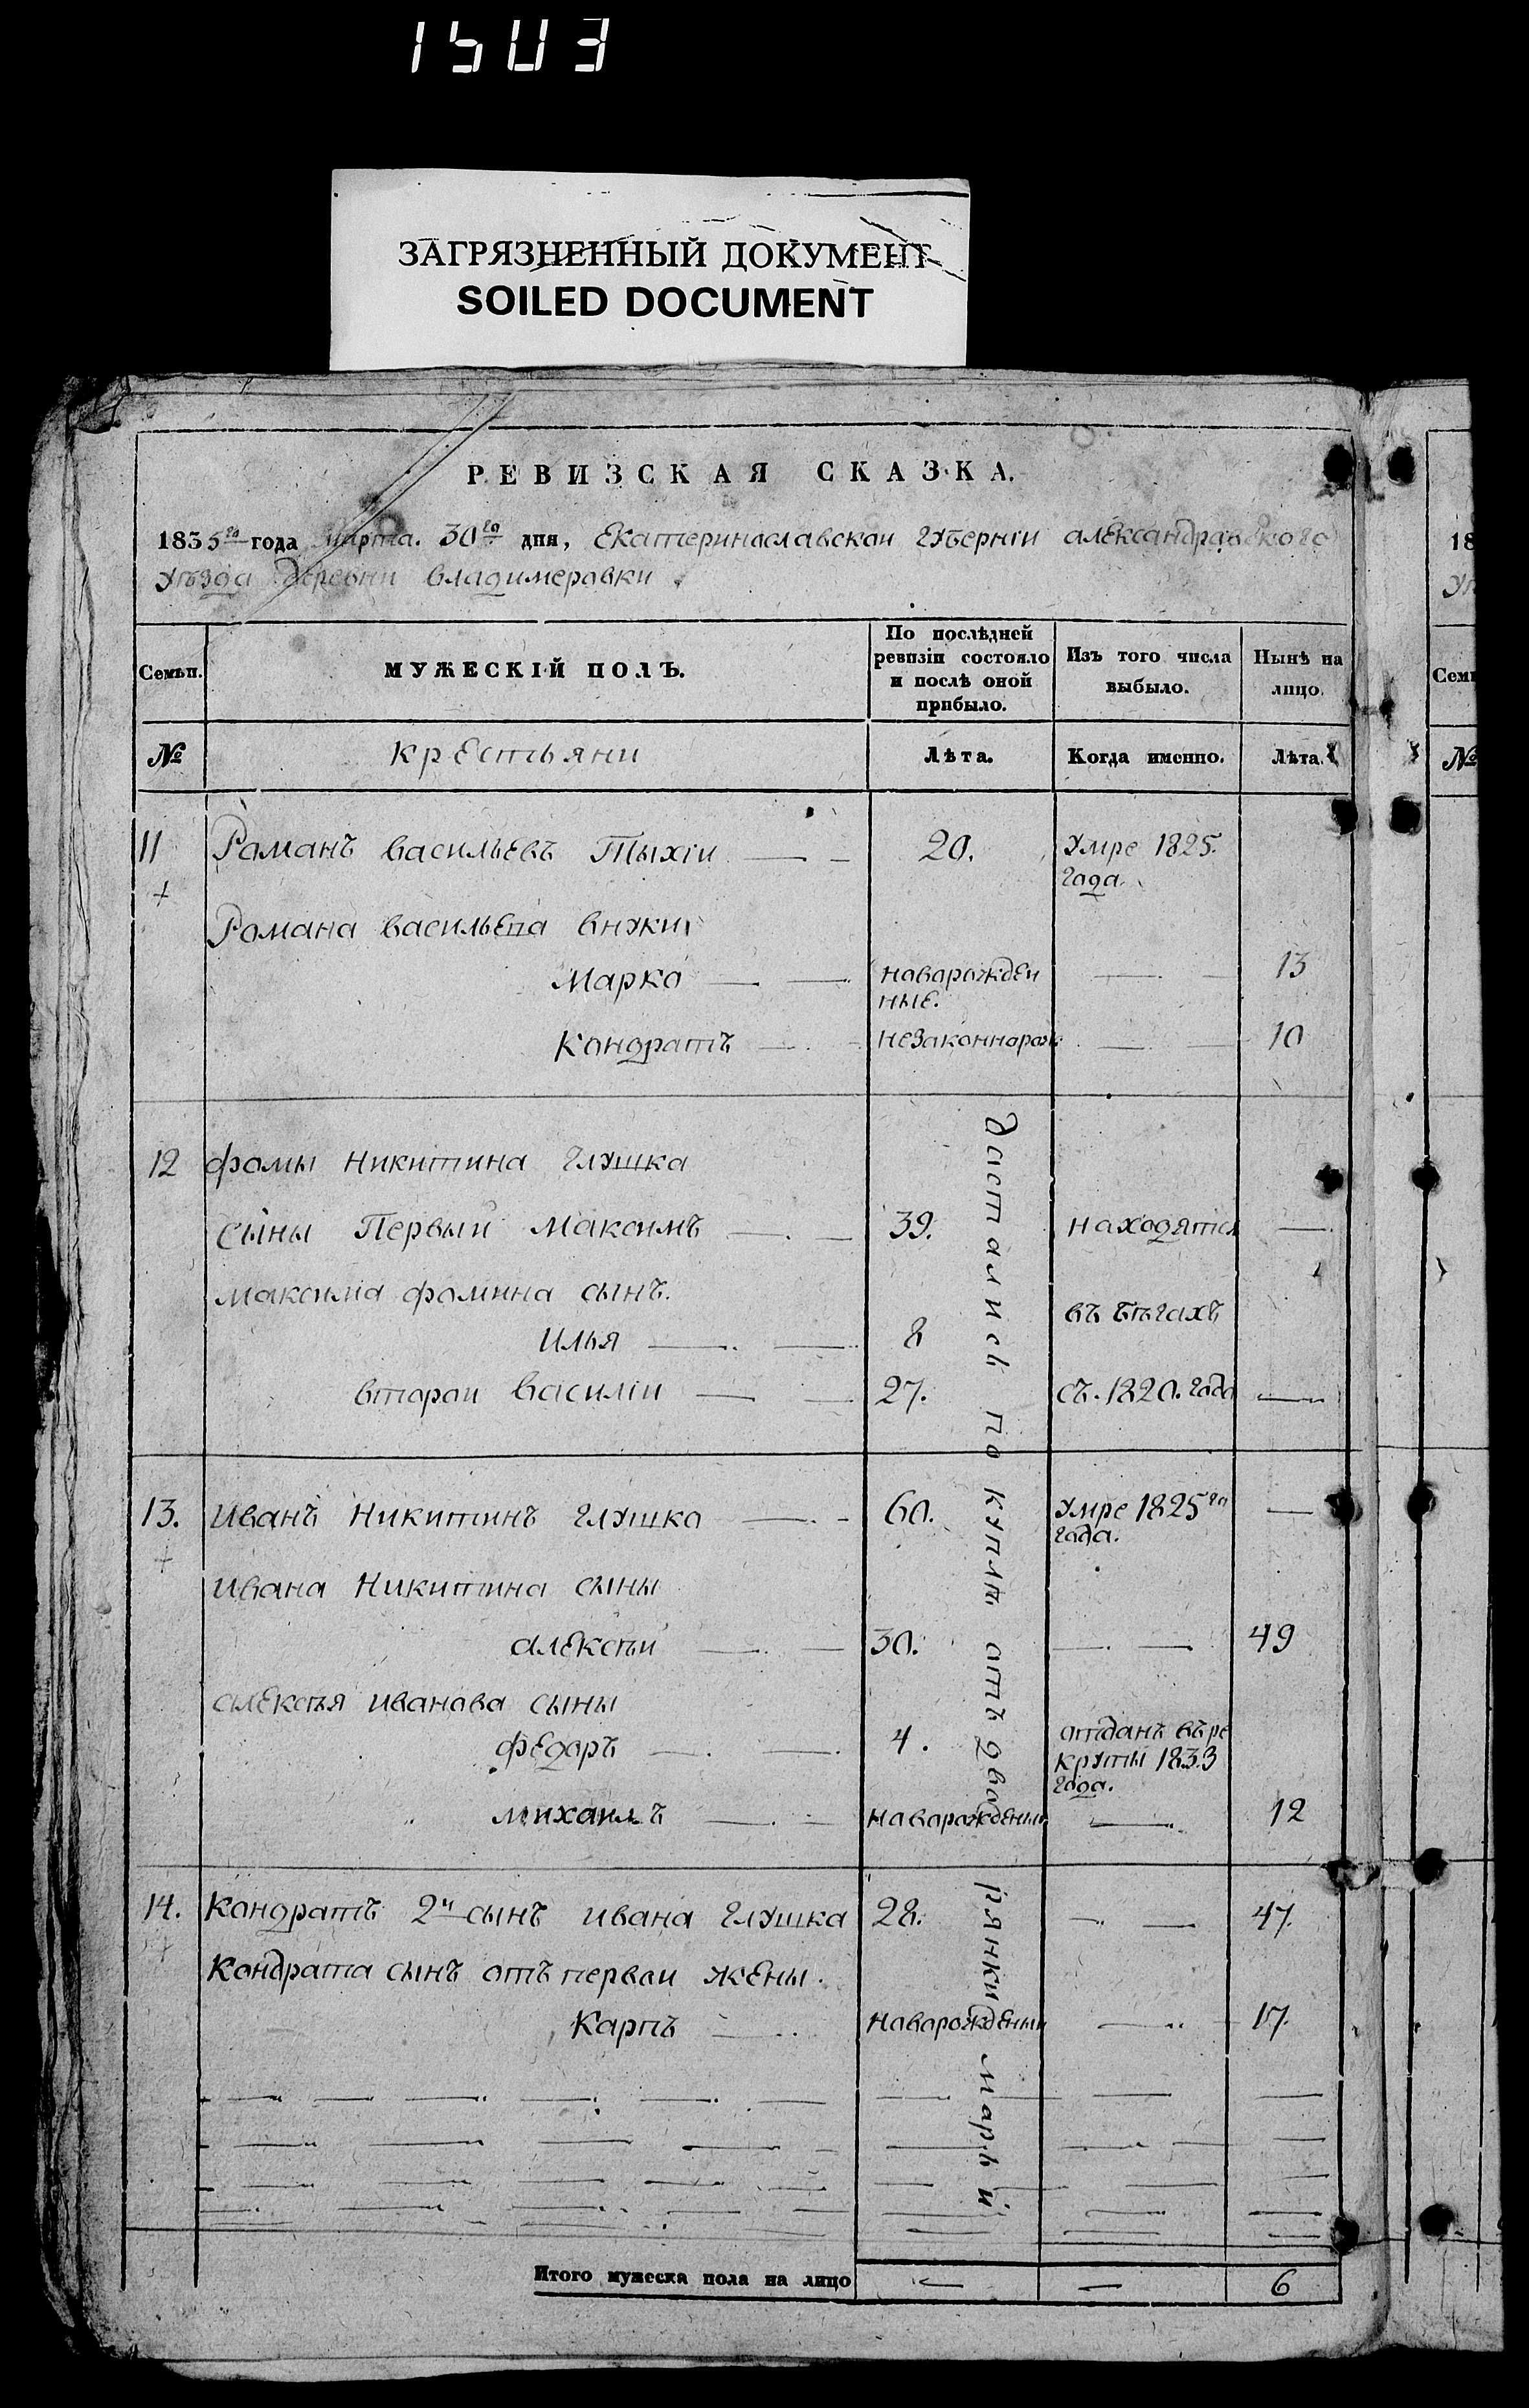 1503
ЗАГРЯЗНЕННЫЙ ДОКУМЕНТ
SOILED DOCUMENT
РЕВИЗСКАЯ СКАЗКА.
1835го года марта. 30го дня, Екатеринославскои губернiи александравскаго
уѣзда деревни владимеравки
Семьи. МУЖЕСКIЙ ПОЛЪ. По послѣдней ревизiи состояло и послѣ оной прибыло. Изъ того числа выбыло. Нынѣ на лицо.
№ крестьяни Лѣта. Когда именно. Лѣта.
11 Раманъ васильевъ Тыхiи 20. умре 1825. года.
Романа васильева внуки
Марко наварожден ные. 13
Кондратъ незаконнорож 10
12 фомы никитина глушка
сыны Первыи максимъ 39. находятся
максима фомина сынъ.
илья 8 въ бѣгахъ
второи василiи 27. съ. 1820. года
13. иванъ никитинъ глушко 60. умре 1825го года.
ивана никитина сыны
алексѣи 30. 49
алексѣя иванава сыны
федоръ 4. отданъ въре круты 1833 года.
михаилъ наварожденыи 12
14. Кондратъ 2и сынъ ивана глушка 28. 47.
Кондрата сынъ отъ первои жены.
Карпъ наварожденыи 17.
дастались по куплѣ отъ дво рянки марьи
Итого мужеска пола на лицо 6
18
Семь
№